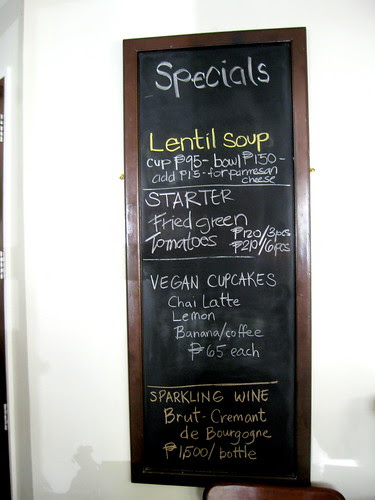 Specials
Lentil Soup
cup ₱95- bowl ₱150-
add ₱15- for parmesan
cheese
STARTER
Fried green
Tomatoes ₱120/3pcs
₱210/6pcs
VEGAN CUPCAKES
Chai Latte
Lemon
Banana/coffee
₱65 each
SPARKLING WINE
Brut- Cremant
de Bourgogne
₱1,500/ bottle